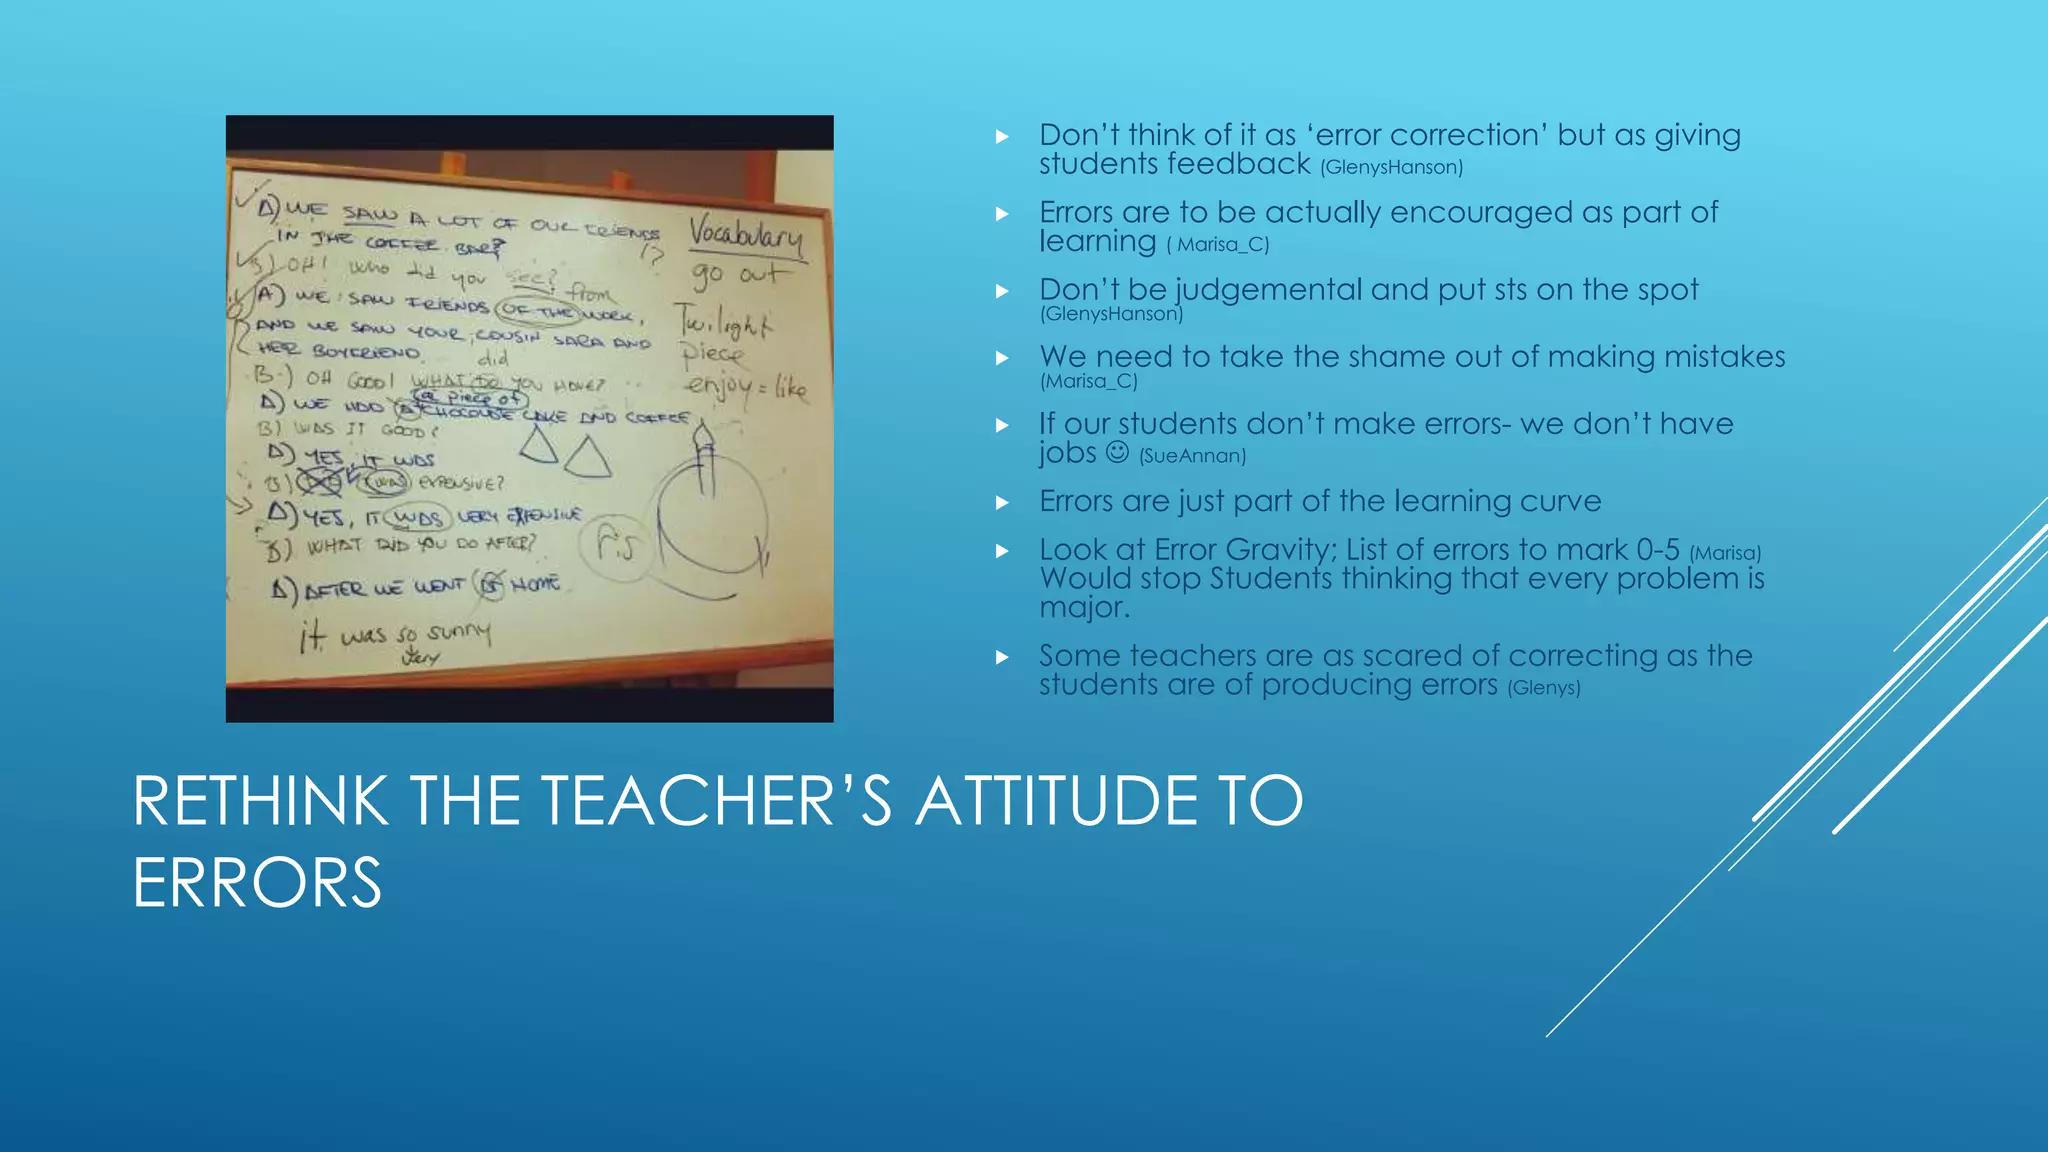 A) WE SAW A LOT OF OUR FRIENDS
IN THE COFFEE BAR?
!?
B) OH! Who did you see?
from
A) WE SAW FRIENDS OF THE WORK,
AND WE SAW YOUR COUSIN SARA AND
HER BOYFRIEND.
did
B) OH GOOD! WHAT DO YOU HAVE?
(a piece of)
A) WE HAD A CHOCOLATE CAKE AND COFFEE
B) WAS IT GOOD?
A) YES, IT WAS
B) WAS EXPENSIVE?
A) YES, IT WAS VERY EXPENSIVE
B) WHAT DID YOU DO AFTER?
A) AFTER WE WENT AT HOME.
it was so sunny
very
Vocabulary
go out
Twilight
piece
enjoy = like
▶ Don’t think of it as ‘error correction’ but as giving
students feedback (GlenysHanson)
▶ Errors are to be actually encouraged as part of
learning ( Marisa_C)
▶ Don’t be judgemental and put sts on the spot
(GlenysHanson)
▶ We need to take the shame out of making mistakes
(Marisa_C)
▶ If our students don’t make errors- we don’t have
jobs ☺ (SueAnnan)
▶ Errors are just part of the learning curve
▶ Look at Error Gravity; List of errors to mark 0-5 (Marisa)
Would stop Students thinking that every problem is
major.
▶ Some teachers are as scared of correcting as the
students are of producing errors (Glenys)
RETHINK THE TEACHER’S ATTITUDE TO
ERRORS